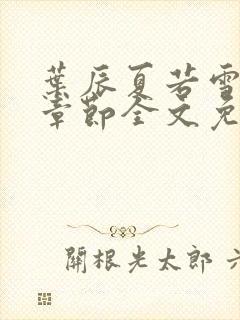 葉辰夏若雪
章節全文免
開根光太郎 六